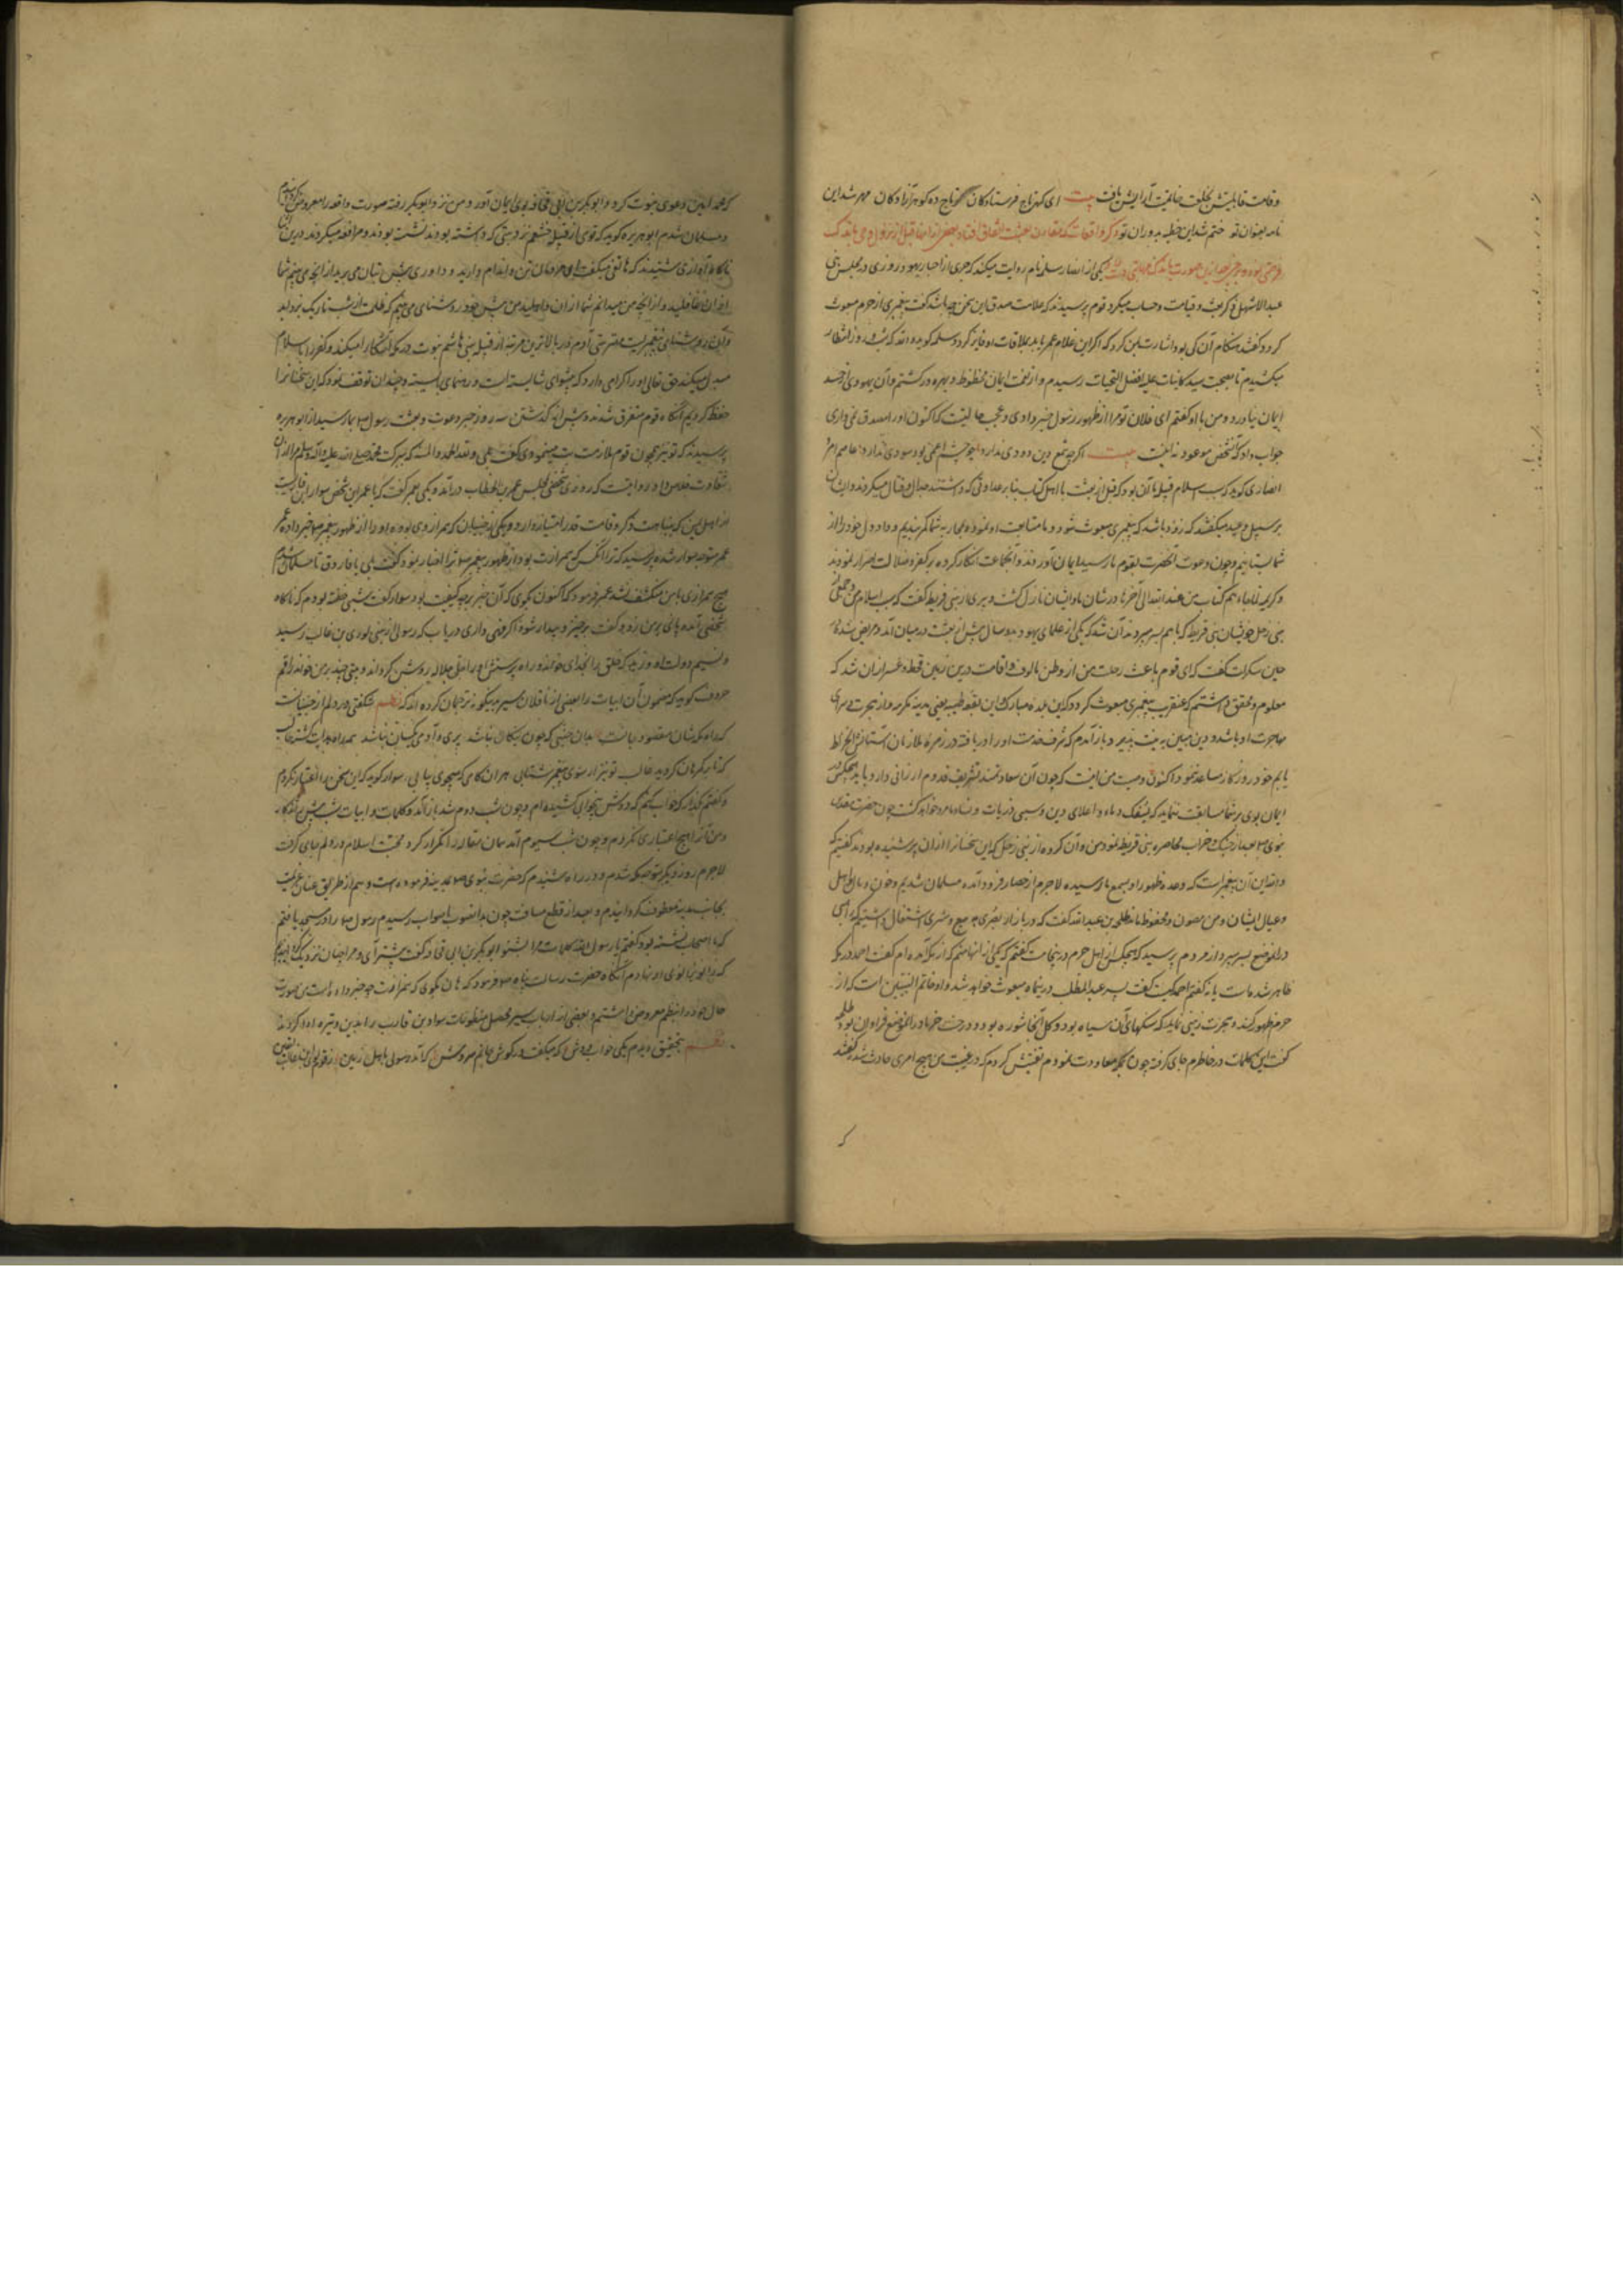 وقامت قابلیتش بخلعت خاتمیت آرایش یافت بیت ای کهن تاج فرستادگان تاج ده گوهر آزادگان مهر شد این
نامه بعنوان تو ختم شد این خطبه بدوران تو ذکر واقعات که مقارن بعثت اتفاق افتاد
یکی از انصار سلمه نام روایت میکند که حبری از احبار یهود روزی در مجلس بنی
عبدالاشهل ذکر بعث و قیامت و حساب میکرد قوم پرسیدند که علامت صدق این سخن چه باشد گفت پیغمبری از حرم مبعوث
کردد گفتند هنگام آن کی بود اشارت بمن کرد که اگر این غلام عمر یابد بملاقات او فایز کردد سلمه گوید والله که شب و روز انتظار
میکشیدم تا بصحبت سید کاینات علیه افضل التحیات رسیدم و از نعمت ایمان محظوظ و بهره ور گشتم و آن یهودی از حسد
ایمان نیاورد و من با او گفتم ای فلان تو مرا از ظهور رسول خبر دادی و عجب حالیست که اکنون او را مصدق نمی داری
جواب داد که آن شخص موعود نه اینست بیت اگرچه شمع دین دودی ندارد چو چشم اعمی بود سودی ندارد عاصم عمر
انصاری گوید که سبب اسلام قبیله ما آن بود که قبل از بعثت با اهل کتاب بنا بر عداوتی که داشتند جدال و قتال میکردند و ایشان
بر سبیل وعید میگفتند که زود باشد که پیغمبری مبعوث شود و ما متابعت او نموده بمحاربه شما کمر بندیم و داد دل خود را از
شما بستانیم و چون دعوت آنحضرت بقوم ما رسید ایمان آوردند و آنجماعت انکار کرده بر کفر و ضلالت اصرار نمودند
و کریمه فلما جاءهم کتاب من عند الله الی آخرها در شان ما و ایشان نازل گشت و پیری از بنی قریظه گفت که سبب اسلام من و جمعی از
بنی زحل خویشان بنی قریظه که با هم بسر میبردند آن شد که یکی از علمای یهود بدو سال پیش از بعثت در میان آمد و مریض شد
حین سکرات گفت که ای قوم باعث رحلت من از وطن مالوف و اقامت درین زمین قحط و خسران شد که
معلوم و محقق داشتم که عنقریب پیغمبری مبعوث گردد که این بلده مبارک و این بقعه طیبه یعنی مدینه مکرمه دار هجرت و سرای
مهاجرت او باشد و دین مبین به یمن پذیرد باز آمدم که شرف خدمت او را دریافته در زمره ملازمان آستانش انخراط
یابم خود روزگار مساعد نبود اکنون وصیت من اینست که چون آن سعادتمند تشریف قدوم ارزانی دارد باید هیچکس در
ایمان بوی بر شما مسابقت ننماید که بسفک دماء و اعلای دین و سبی ذریات و نساء مامور خواهد گشت چون حضرت مقدس
نبوی صلعم بعد از جنگ احزاب محاصره بنی قریظه نمود من و آن گروه از بنی زحل که این سخنان را از آن پیر شنیده بودند گفتیم که
والله این آن پیغمبر است که وعده ظهور او بسمع ما رسیده لاجرم از حصار فرود آمده مسلمان شدیم و خون و مال و اهل
و عیال ایشان و من مصون و محفوظ ماند طلحه بن عبدالله گفت که در بازار بصری به بیع و شری اشتغال داشتیم که راهبی
در آن موضع بسر میبرد از مردم پرسید که هیچکس از اهل حرم در پنجا هست گفتم که یکی از آنها منم که از مکه آمده ام گفت احمد در مکه
ظاهر شده است یا نه گفتم احمد کیست گفت پسر عبدالمطلب درین ماه مبعوث خواهد شد و او خاتم النبیین است که از
حرم ظهور کند و هجرت بزمینی نماید که سنگهای آن سیاه بود و گل آنجا شوره بود و درخت خرما در آن موضع فراوان بود طلحه
گفت این کلمات در خاطرم جای گرفته چون بمکه معاودت نمودم تفتیش کردم که در غیبت من هیچ امری حادث شد گفتند
که محمد امین دعوی نبوت کرد و ابوبکر بن ابی قحافه بوی ایمان آورد و من نزد ابوبکر رفته صورت واقعه را معروض گردانیدم
و مسلمان شدم ابو هریره گوید که قومی از قبیله خثعم نزد بتی که داشته بودند نشسته بودند و مرافعه میکردند درین اثنا
ناگاه آوازی شنیدند که هاتفی میگفت ای مردمان تن و اندام دارید و داوری پیش بتان می برید از آنچه می بینم شما
از آن غافلید و از آنچه من میدانم شما از آن ذاهلید من پیش خود روشنای می بینم که ظلمت از شب تاریک بزداید
و آن روشنائی پیغمبریست مفترض آدم در بالاترین مرتبه از قبیله بنی هاشم نبوت در مکه آشکارا میکند و کفر را باسلام
مبدل میکند حق تعالی او را گرامی دارد که پیشوای شایسته است و رهنمای بایسته و چندان توقف نمود که این سخنان را
حفظ کردیم آنگاه قوم متفرق شدند و پیش از گذشتن سه روز خبر دعوت و بعثت رسول صلعم بما رسید از ابو هریره
پرسیدند که تو نیز همچون قوم ملازمت بت مینمودی گفت بلی و لله الحمد والمنه که ببرکت محمد صلی الله علیه و آله وسلم مرا از آن
شقاوت خلاص داد و روایتست که روزی شخصی بمجلس عمر بن الخطاب در آمد و یکی بعمر گفت که یا عمر این شخص سواد بن قاربست
از اهل یمن که بنباهت ذکر و قامت قدر امتیاز دارد و یکی از جنیان که همراز وی بوده او را از ظهور پیغمبر صلعم خبر داده عمر
عمر متوجه سواد شده پرسید که ترا آنکس که همرازت بود از ظهور پیغمبر صلعم ترا اخبار نمود گفت بلی یا فاروق تا مسلمان شدم
هیچ همرازی با من منکشف نشد عمر فرمود که اکنون بگوی که آن خبر بر چه کیفیت بود سواد گفت شبی خفته بودم که ناگاه
شخصی آمده پای بر من زد و گفت برخیز و بیدار شو اگر فهمی داری دریاب که رسولی از بنی لوی بن غالب رسید
و نسیم دولت او وزید که خلق را بخدای خواند و راه پرستش او را جل جلاله روشن گرداند و بیتی چند بر من خواند راقم
حروف گوید که مضمون آن ابیات را بعضی از ناقلان سیر بدینگونه ترجمان کرده اند که نظم شگفتی در دلم از جنیانست
که راه مکه شان مقصود جانست بدان جنبی که چون نیکان نباشد پری و آدمی یکسان نباشد
سواد گوید که این سخن را اعتبار نکردم
و گفتم بگذار که خواب کنم که دوش بیخوابی کشیده ام و چون شب دوم شد باز آمد و کلمات و ابیات شب پیش بتکرار
و من آنرا هیچ اعتباری نکردم و چون شب سیوم آمد همان مقال را تکرار کرد محبت اسلام در دلم جای گرفت
لاجرم روز دیگر متوجه مکه شدم و در راه شنیدم که حضرت نبوی صلعم بمدینه فرموده است و هم از طریق عنان عزیمت
بجانب مدینه معطوف گردانیدم و بعد از قطع مسافت چون بدانصوب باصواب رسیدم رسول صلعم را در مسجد یافتم
که با اصحاب نشسته بود گفتم یا رسول الله کلمات مرا بشنو ابوبکر بن ابی قحافه گفت پیشتر آی و مرا چنان نزدیک گردانیدند
که زانو بزانوی او نهادم آنگاه حضرت رسالت پناه صلعم فرمود که هان بگوی که همرازت چه خبر داده است من صورت
حال خود را بنظم معروض داشتم و بعضی از ارباب سیر محصل منظومات سواد بن قارب را بدین وتیره ادا کرده اند
نظم بتحقیق دیدم یکی خواب دوش که میگفت در گوش جانم سروش که آمد رسولی باهل زمین